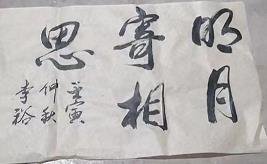 明月
寄相
思
壬寅
仲秋
李裕